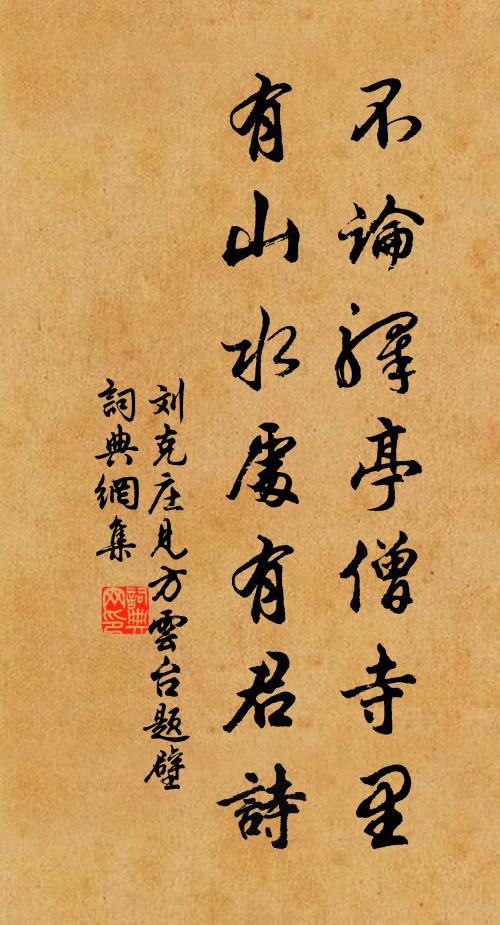 不論驛亭僧寺里
有山水處有君詩
刘克庄见方雲台题壁
詞典網集
詞典网印